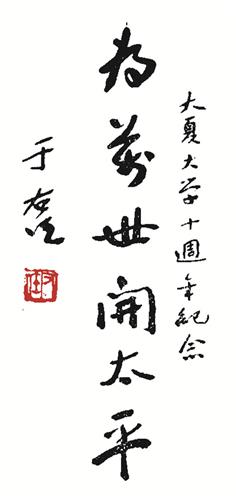 大夏大学十週年紀念
为萬世開太平
于右任